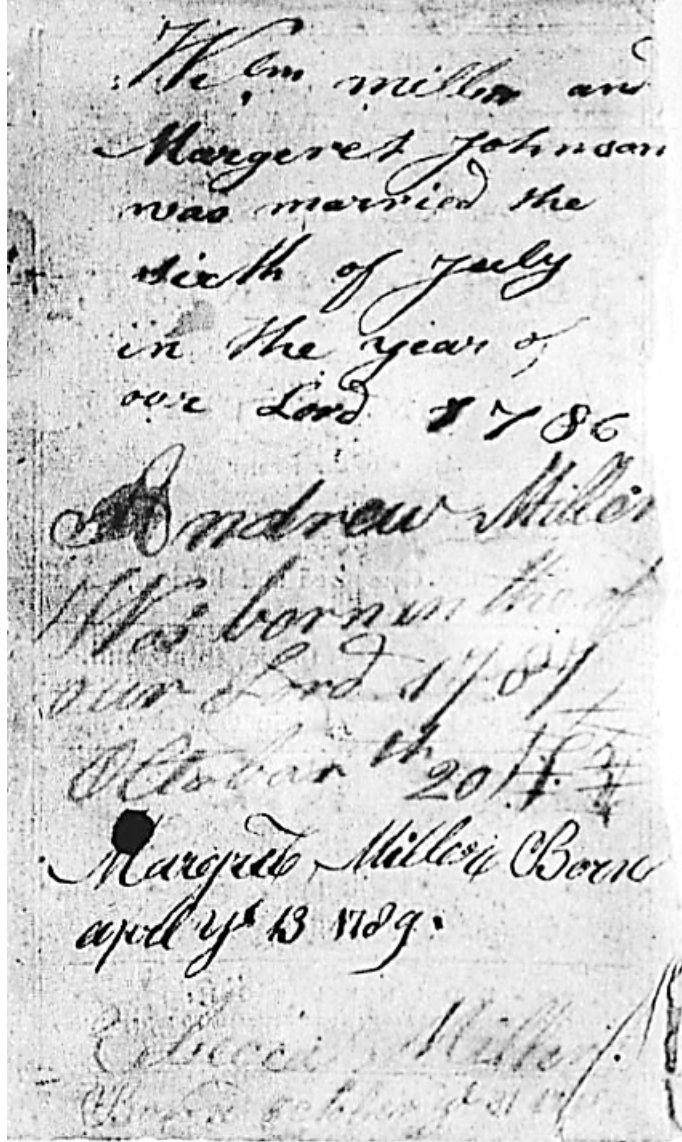 Wm miller and
Margeret Johnson
was married the
sixth of July
in the year of
our Lord 1786
Andrew Miller
Was born in the of
our Lord 1787
Octobar th 20
Margret Miller Born
april ye 13 1789.
Miller
Born october ye